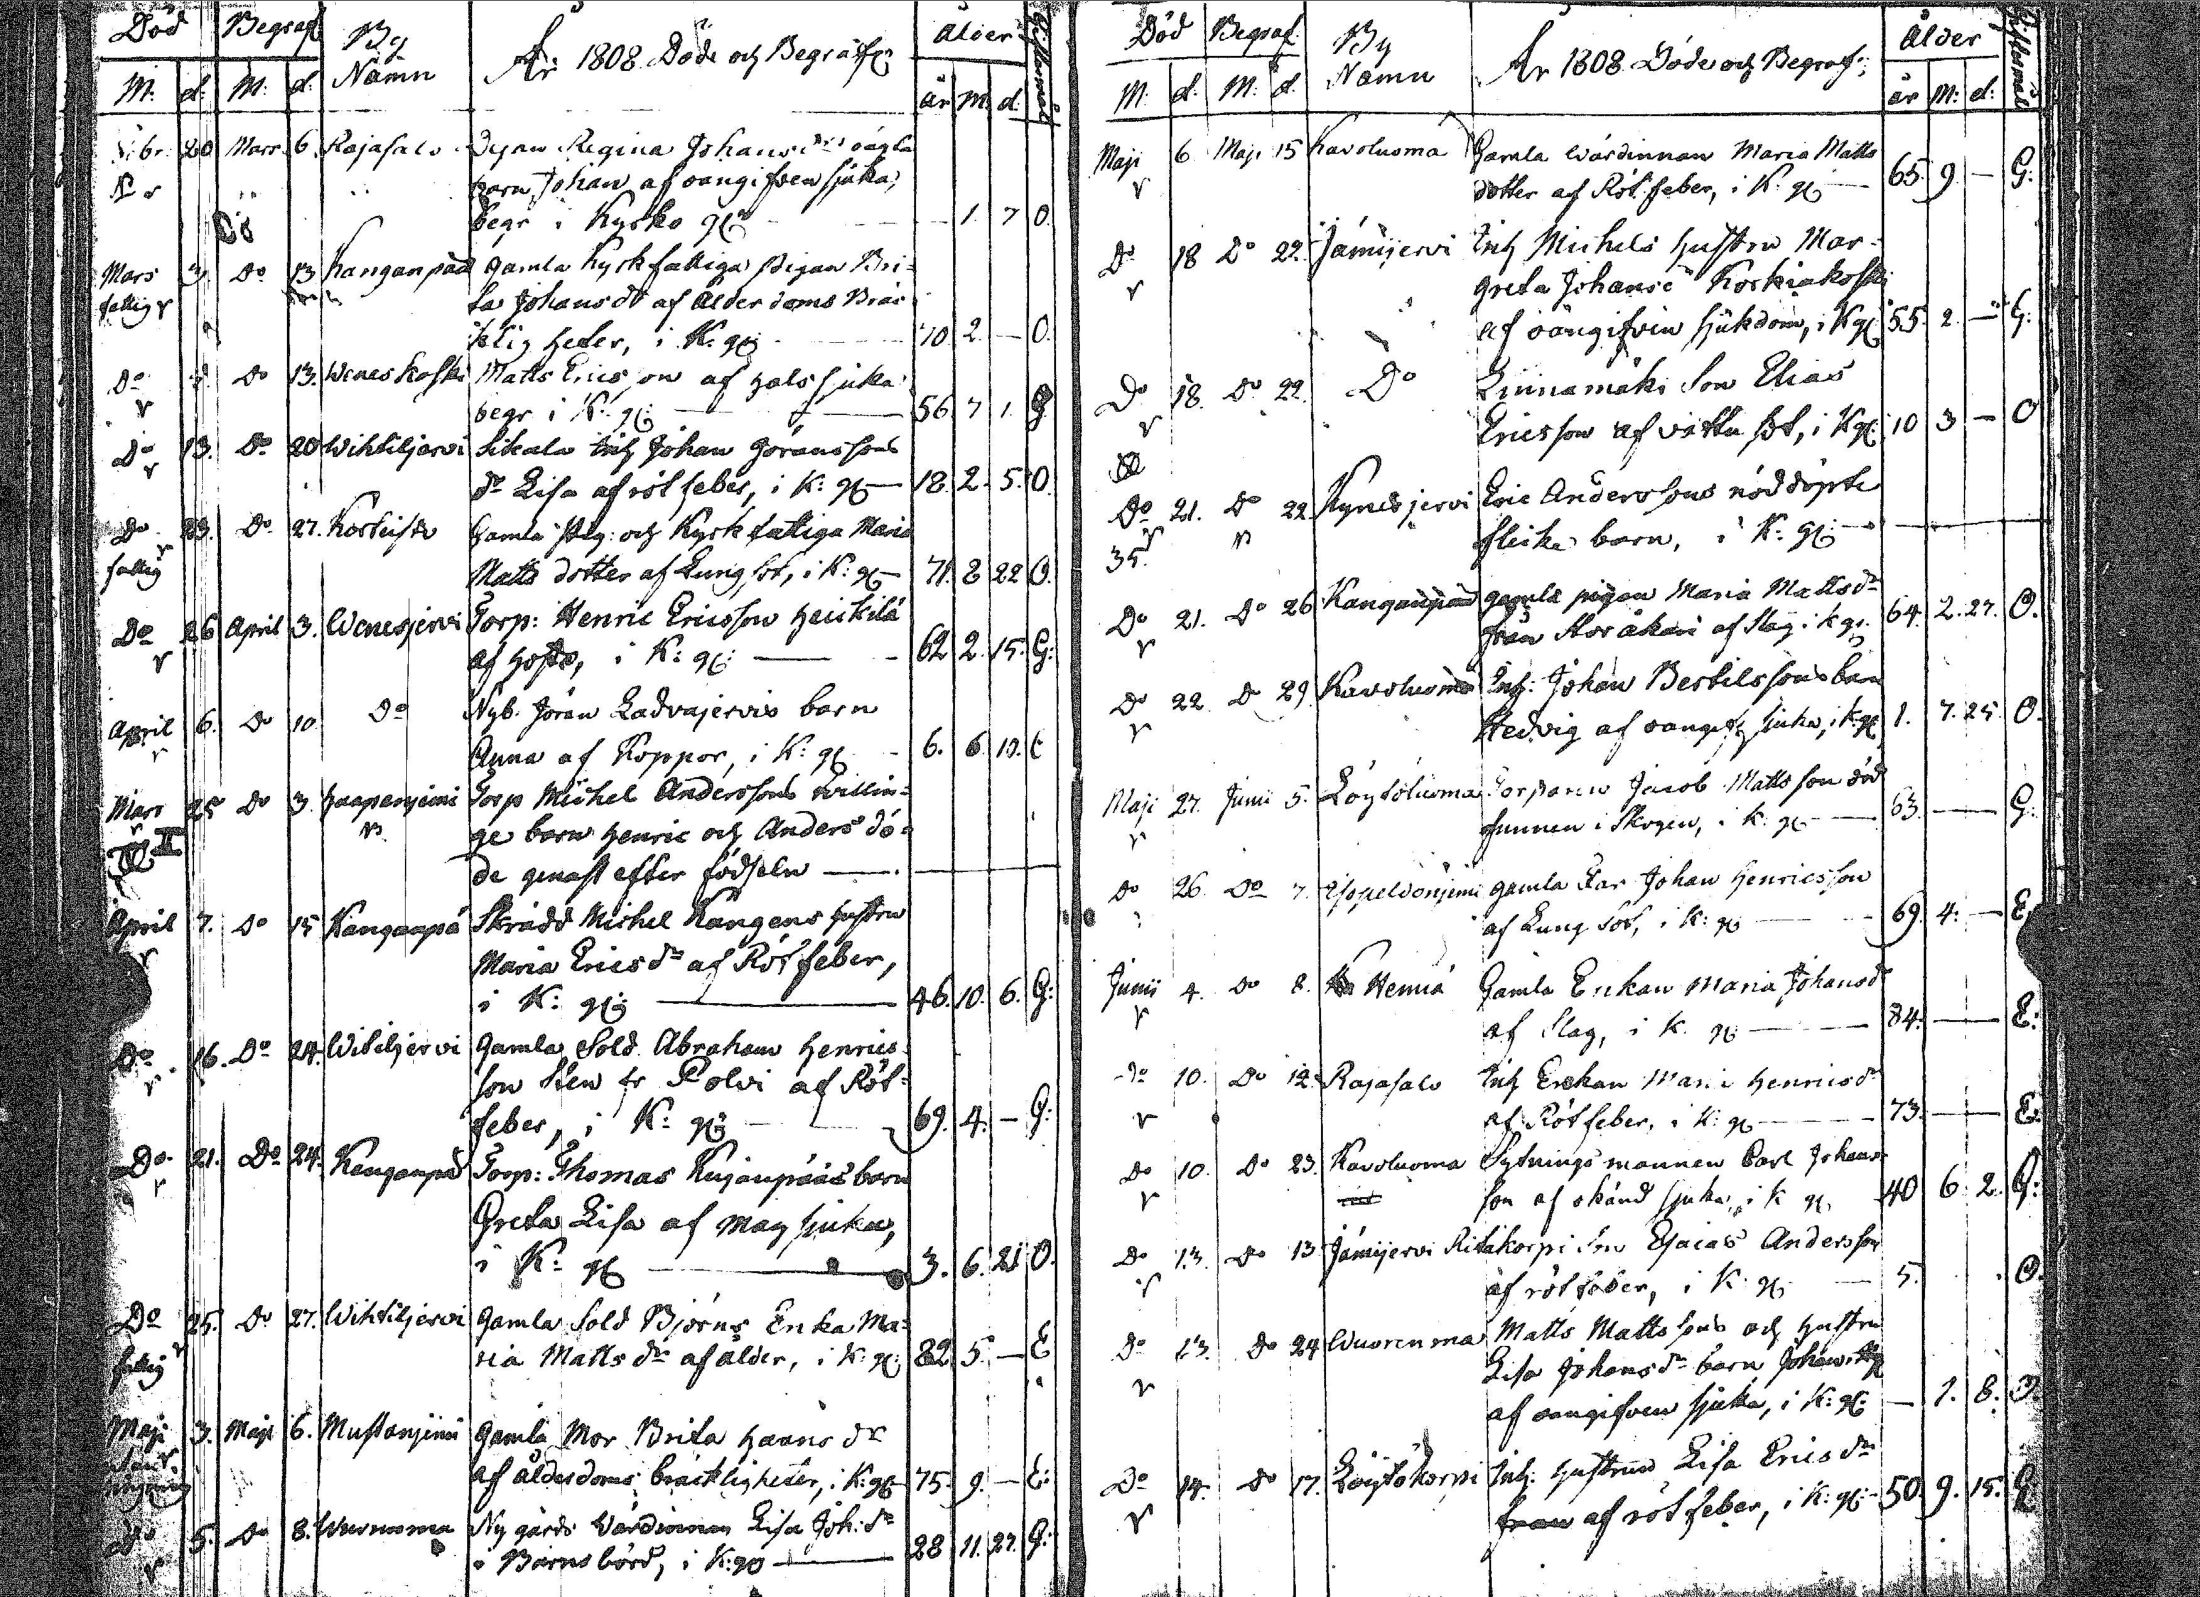 Död Begraf By Namn År 1808 Döde och Begrafne Ålder Giftermål
M: d: M: d: år M. d:
Febr. 20 Mars 6. Rajasalo Pigan Regina Johansdrs oägta
barn Johan af oangifven sjuka,
begr i Kyrko gd — 1. 7 O.
Mars 3. Do 13 Kanganpää Gamla Kyrkfattiga Pigan Bri-
fattig ta Johansdr af Ålderdoms Bräc
kligheter, i K: gd 70 2. — O.
Do Do 13. Weneskoski Matts Ericson af halssjuka
begr i K: gd: — 56. 7 1. G
Do 13. Do 20 Wihtiljervi Sikala Inh Johan Göranssons
dr Lisa af rötfeber, i K: gd — 18. 2. 5. O.
Do 23. Do 27. Gamla och Kyrkfattiga Maria
fattig Matts dotter af Lungsot, i K: gd — 71. 8 22 O.
Do 26 April 3. Wenesjervi Torp: Henric Ericsson Heickilä
af Hosta, i K: gd: — 62 2. 15. G:
April 6. Do 10. Do Nyb. Jöran Ladvajervis barn
Anna af Koppor, i K: gd — 6. 6 10.
Mars 25 Do 3. Haapanjemi Torp Michel Anderssons tvillin-
ge barn Henric och Anders dö-
de genast efter födseln —
April 7. Do 15 Kangaapä Skrädd Michel Kangens hustru
Maria Ericsdr af Rötfeber,
i K: gd: — 46. 10. 6. G:
Do 16. Do 24. Witiljervi Gamla Sold. Abraham Henrics
son Sten fr Polvi af Röt-
feber, i K: gd — 69. 4. — G:
Do 21. Do 24. Kangonpä Torp: Thomas Kujanpääs barn
Greta Lisa af magsjuka,
i K: gd — 3. 6. 21 O.
Do 25. Do 27. Wihtiljervi Gamla Sold Björns Enka Ma-
fattig ria Matts dr af ålder, i K: gd: 82 5. — E
Maji 3. Maji 6. Mustanjemi Gamla Mor Brita Haans dr
af ålderdoms bräckligheter, i K: gd — 75. 9. — E:
Do 5. Do 8. Wuorenma Nygårds Värdinnan Lisa Joh: dr
i Barnsbörd, i K: gd — 28 11. 27. G:
Död Begraf: By Namn År 1808 Döde och Begraf: Ålder Giftermål
M: d: M: d. år M: d:
Maji 6. Maji 15 Kavoluoma Gamla Värdinnan Maria Matts
dotter af Röt feber, i K: gd — 65. 9 — G:
Do 18 Do 22. Jämijervi Inh Michels hustru Mar-
greta Johansd Koskiakoski
af oangifven sjukdom, i K gd 55. 2. — G:
Do 18. Do 22. Do Linnamäki Son Elias
Ericsson af vattu sot, i K gd: 10 3 — O
Do 21. Do 22. Kynesjervi Eric Anderssons nöddöpte
35. flicke barn, i K: gd: —
Do 21. Do 26 Kangaupää gamla pigan Maria Mattsdr
från af Slag i k gd. 64. 2. 27. O.
Do 22. Do 29. Kavoluoma Inh: Johan Bertilssons barn
Hedvig af oangifv sjuka, i K: gd 1. 7. 25. O.
Maji 27. Junii 5. Löytöluoma Torparen Jacob Mattsson död
funnen i Skogen, i K: gd — 63. — G:
Do 26. Do 7. gamla Far Johan Henricsson
af Lung sot, i K: gd — 69. 4. — E
Junii 4. Do 8. Hemiä Gamla Enkan Maria Johansdr
af Slag, i K. gd — 84. — E:
Do 10. Do 12. Rajasalo Inh Enkan Maria Henricsdr
af Rötfeber, i K: gd — 73. — E.
Do 10. Do 23. Kavoluoma Sytningsmannen Carl Johans-
son af okänd sjuka, i k gd. 40 6. 2. G:
Do 13. Do 13 Jämijervi Ritakorpi Son Esaias Andersson
af rötfeber, i K: gd — 5. O.
Do 13. Do 24 Wuorenma Matts Mattssons och hustru
Lisa Johansdr barn Johan
af oangifven sjuka, i K: gd: — 1. 8. O.
Do 14. Do 17. Löytökorpi Inh: hustrun Lisa Ericsdr
af rötfeber, i K: gd: — 50. 9. 15. G: